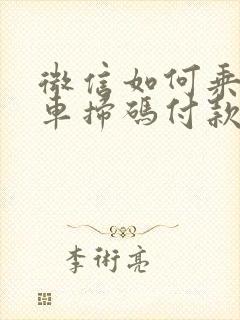 微信如何乘
車掃碼付款
李術亮